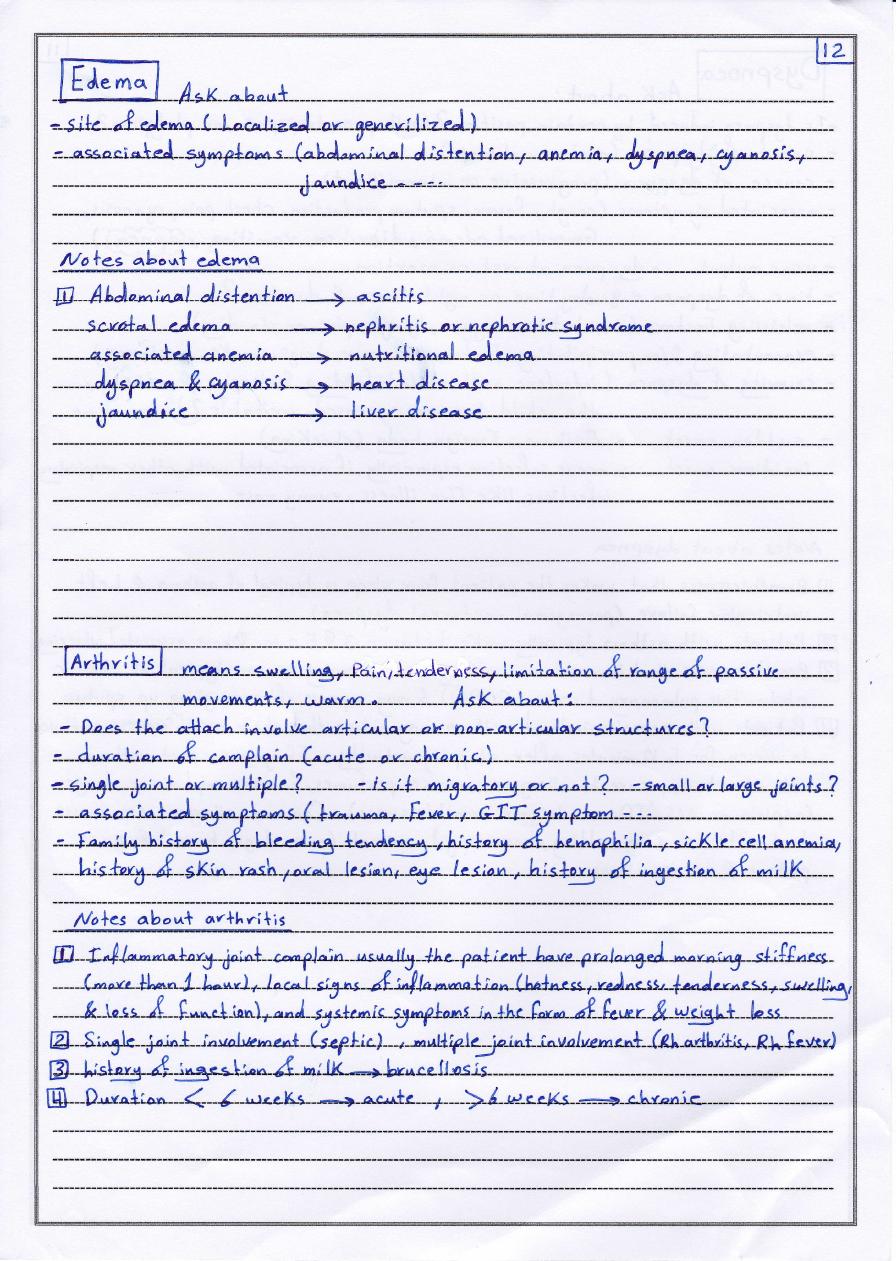 12
Edema Ask about
- site of edema ( Localized or generilized )
- associated symptoms (abdominal distention, anemia, dyspnea, cyanosis,
jaundice ----
Notes about edema
1 Abdominal distention → ascitis
scrotal edema → nephritis or nephrotic syndrome
associated anemia → nutritional edema
dyspnea & cyanosis → heart disease
jaundice → liver disease
Arthritis means swelling, Pain, tenderness, limitation of range of passive
movements, warm. Ask about :
- Does the attach involve articular or non-articular structures ?
- duration of complain (acute or chronic)
- single joint or multiple ? - is it migratory or not ? - small or large joints ?
- associated symptoms ( trauma, Fever, GIT symptom ---
- Family history of bleeding tendency , history of hemophilia , sickle cell anemia,
history of skin rash , oral lesion, eye lesion , history of ingestion of milk
Notes about arthritis
1 Inflammatory joint complain usually the patient have prolonged morning stiffness
(more than 1 hour), local signs of inflammation (hotness, redness, tenderness, swelling,
& loss of function), and systemic symptoms in the form of fever & weight loss
2 Single joint involvement (septic) , multiple joint involvement (Rh arthritis, Rh fever)
3 history of ingestion of milk → brucellosis
4 Duration < 6 weeks → acute , > 6 weeks → chronic